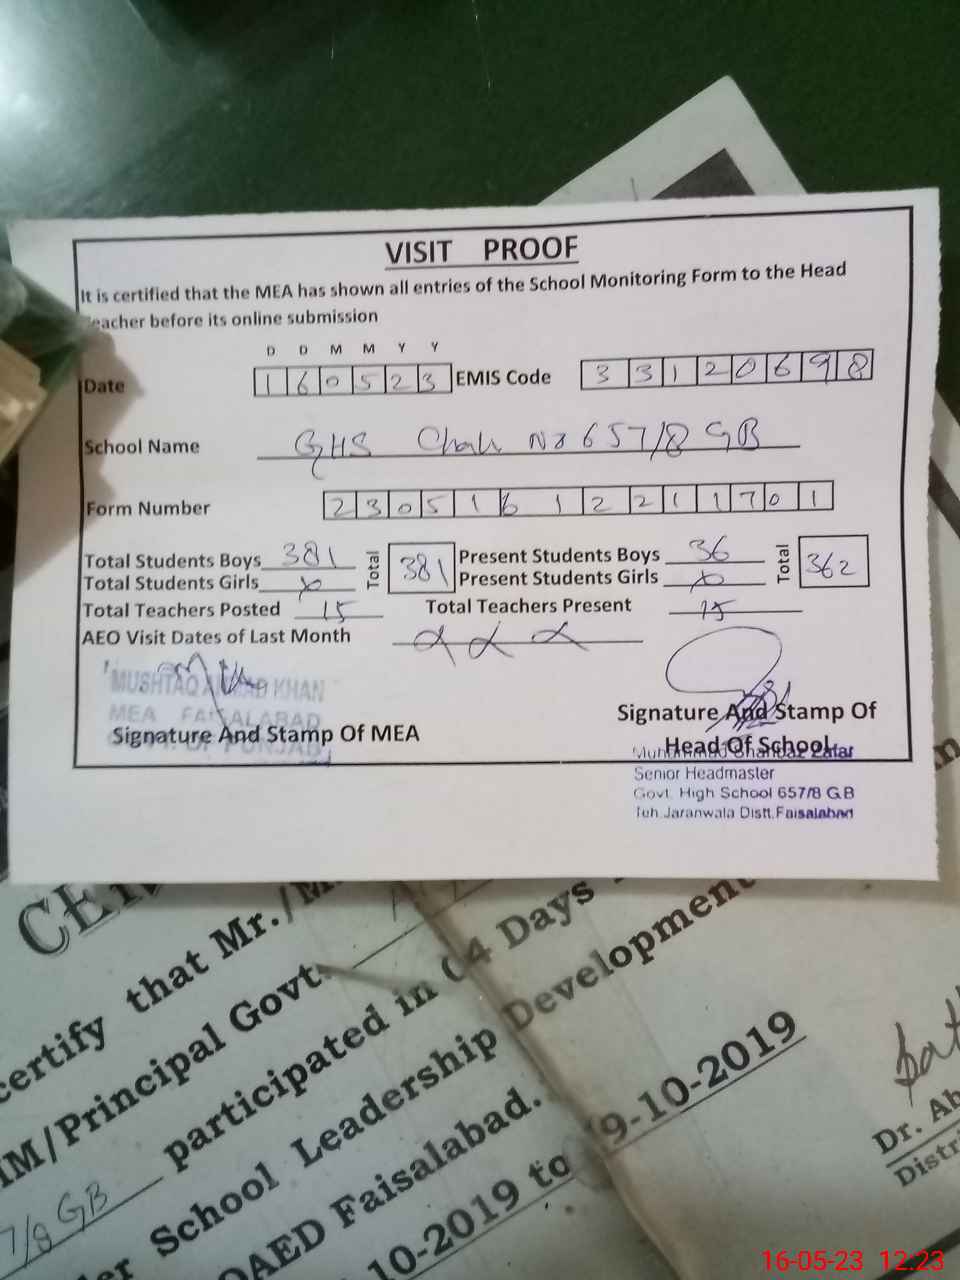 VISIT PROOF
It is certified that the MEA has shown all entries of the School Monitoring Form to the Head
Teacher before its online submission
D D M M Y Y
Date 1 6 0 5 2 3 EMIS Code 3 3 1 2 0 6 9 8
School Name GHS Chak No 657/8 GB
Form Number 2 3 0 5 1 6 1 2 2 1 1 7 0 1
Total Students Boys 381 Total 381 Present Students Boys 36 Total 362
Total Students Girls x Present Students Girls x
Total Teachers Posted 15 Total Teachers Present 15
AEO Visit Dates of Last Month x x x
MUSHTAQ AHMAD KHAN
MEA FAISALABAD
OF PUNJAB
Signature And Stamp Of MEA
Signature And Stamp Of
Head Of School
Muhammad Shahbaz Zafar
Senior Headmaster
Govt. High School 657/8 GB
Teh. Jaranwala Distt. Faisalabad
certify that Mr./
/Principal Govt.
7/8 GB participated in 04 Days
School Leadership Development
Faisalabad.
10-2019 to 9-10-2019
Dr.
16-05-23 12:23